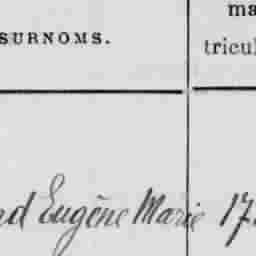 SURNOMS.
ma
tricul
nd Eugène Marie 17